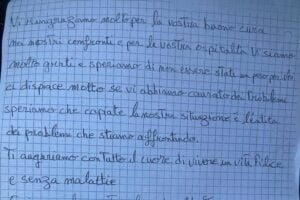 Vi ringraziamo molto per la vostra buone cura
nei nostri confronti e per la vostra ospitalità. Vi siamo
molto grati e speriamo di non essere stati un peso per voi
ci dispiace molto se vi abbiamo causato dei problemi
speriamo che capiate la nostra situazione e
dei problemi che stiamo affrontando.
Ti auguriamo con tutto il cuore di vivere un vita felice
e senza malattie